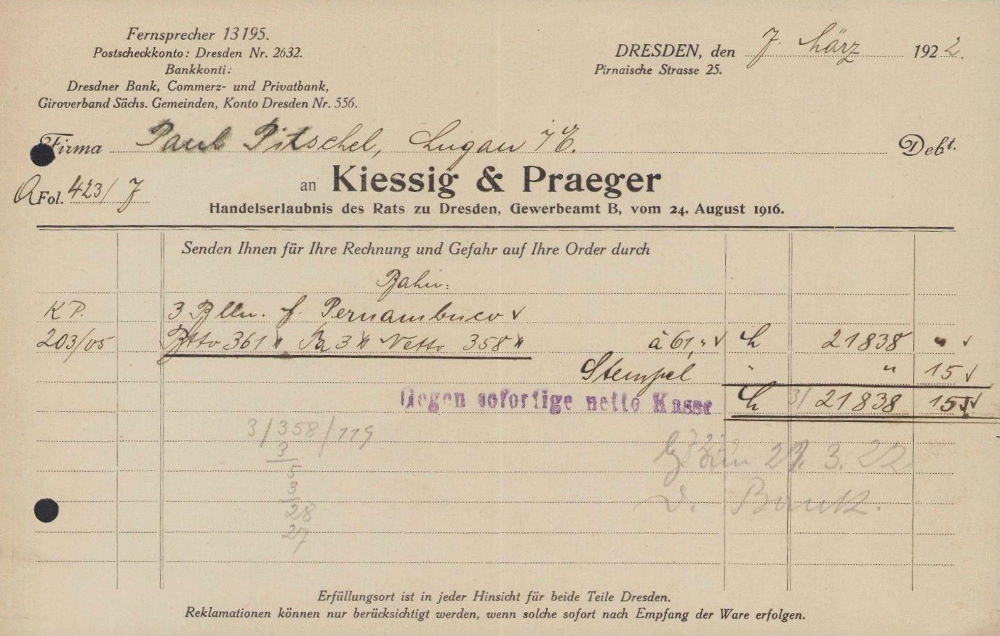 Fernsprecher 13195.
Postscheckkonto: Dresden Nr. 2632.
Bankkonti:
Dresdner Bank, Commerz- und Privatbank,
Giroverband Sächs. Gemeinden, Konto Dresden Nr. 556.
DRESDEN, den 7. März 1922.
Pirnaische Strasse 25.
Firma Paul Pitschel, Lugau i/E. Debt.
Fol. 423/7
an Kiessig & Praeger
Handelserlaubnis des Rats zu Dresden, Gewerbeamt B, vom 24. August 1916.
Senden Ihnen für Ihre Rechnung und Gefahr auf Ihre Order durch
Bahn:
KP. 3 Blln. f. Pernambuco
203/05 Btto 361 Ra 3 Netto 358 à 61, 21838
Stempel 15
Gegen sofortige netto Kasse 21838 15
3/358/119
3
5
3
28
27
29.3.22
Erfüllungsort ist in jeder Hinsicht für beide Teile Dresden.
Reklamationen können nur berücksichtigt werden, wenn solche sofort nach Empfang der Ware erfolgen.